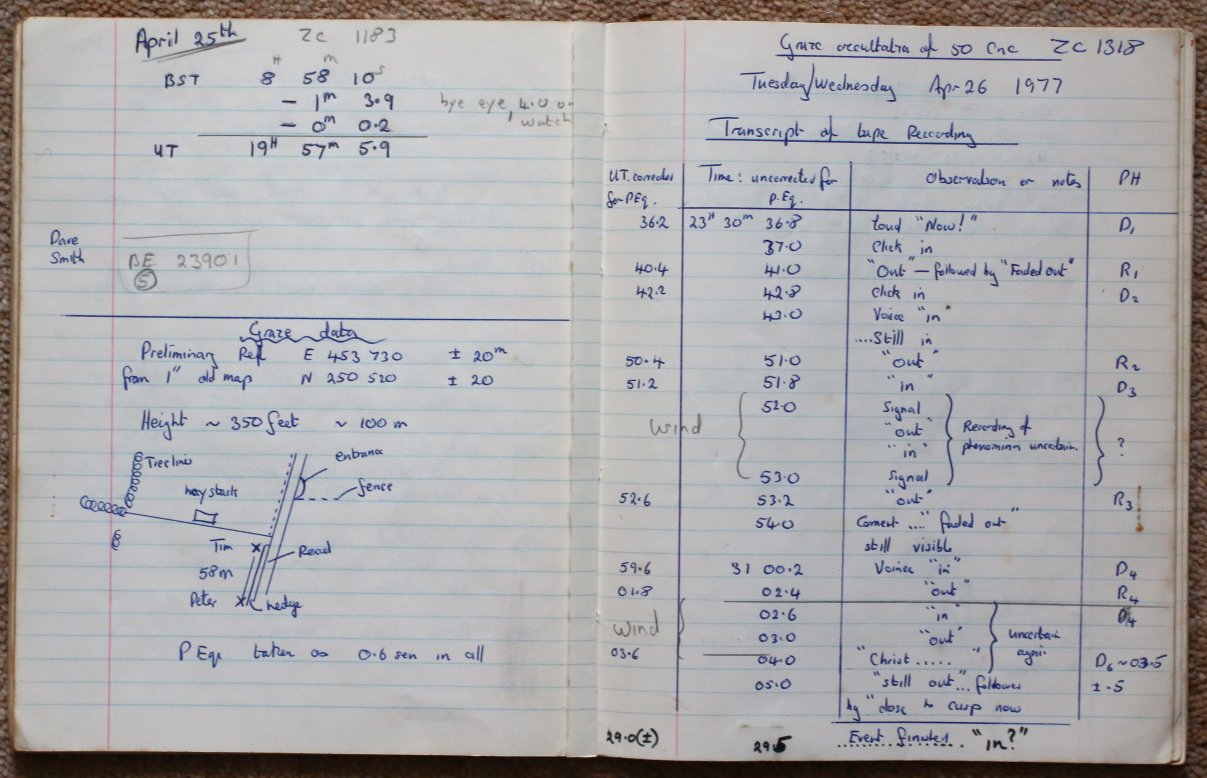 April 25th ZC 1183
H m s
BST 8 58 10
- 1m 3.9 bye eye, 4.0 o.
- 0m 0.2 watch
UT 19H 57m 5.9
Dave
Smith
BE 23901
5
Graze data
Preliminary Ref E 453 730 ± 20m
from 1" old map N 250 520 ± 20
Height ~ 350 feet ~ 100 m
Treeline
entrance
haystack
fence
Tim
Road
58m
Peter
hedge
P Eqn taken as 0.6 sec in all
Graze occultation of 50 Cnc ZC 1318
Tuesday/Wednesday Apr 26 1977
Transcript of tape Reccording
UT. corrected Time: uncorrected for Observation or notes PH
for PEq. P.Eq.
36.2 23H 30m 36.8 loud "Now!" D1
37.0 Click in
40.4 41.0 "Out" — followed by "Faded out" R1
42.2 42.8 Click in D2
43.0 Voice "in"
....Still in
50.4 51.0 "out" R2
51.2 51.8 "in" D3
52.0 Signal
wind "out" Recording of
"in" phenomina uncertain. ?
53.0 Signal
52.6 53.2 "out" R3
54.0 Coment .... "faded out"
still visible
59.6 31 00.2 Voice "in" D4
01.8 02.4 "out" R4
02.6 "in"
wind 03.0 "out" uncertain
again
03.6 04.0 "Christ ..... " D6 ~ 03.5
05.0 "still out"... followed ± .5
by "close to cusp now
29.0(±) 29.5 Event finished. "in?"